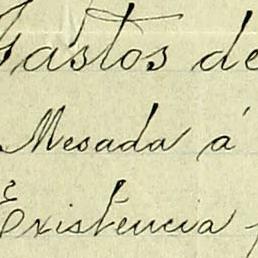 Gastos de
Mesada á
Existencia